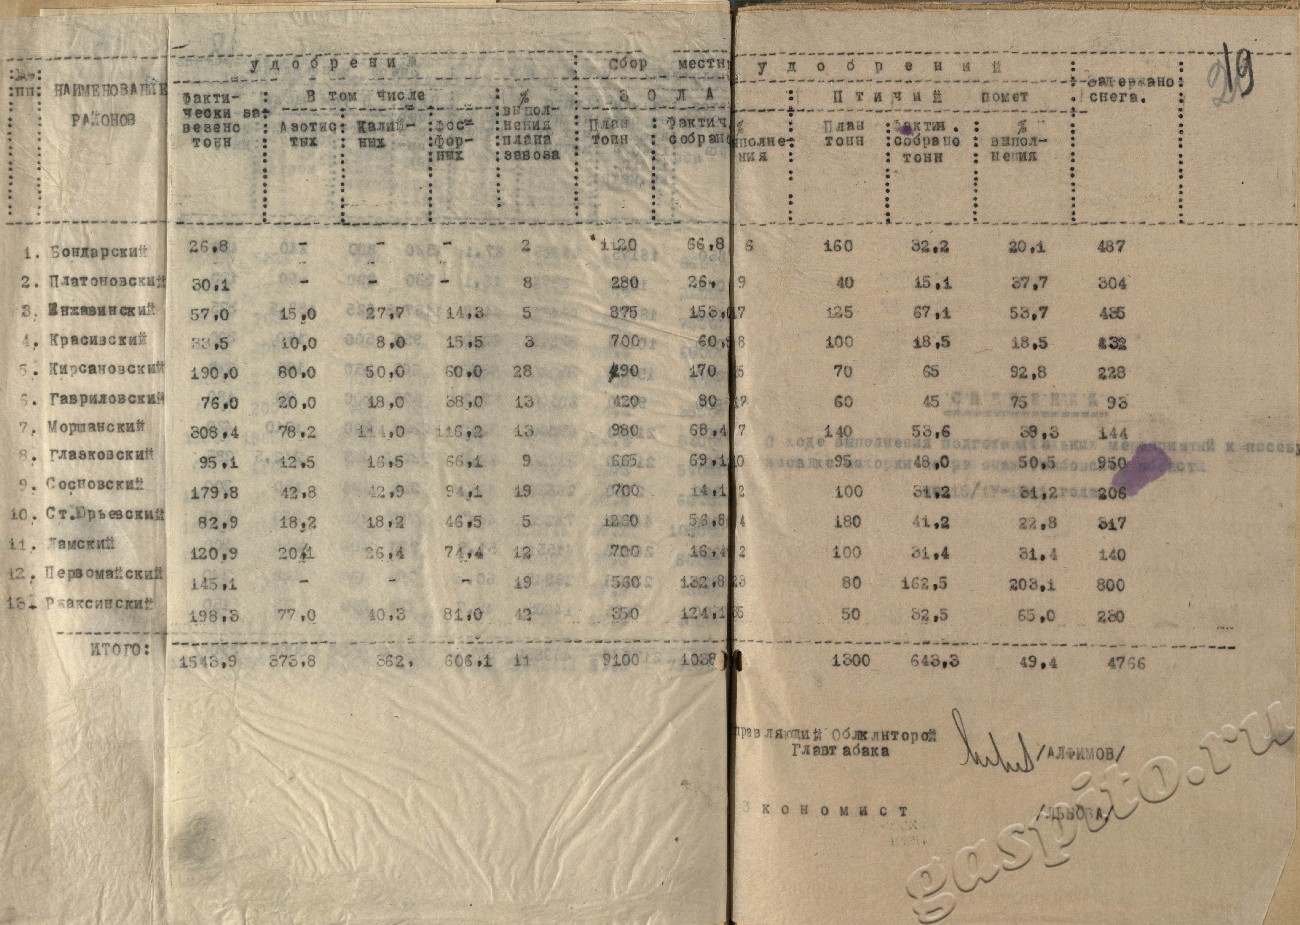 удобрений Сбор местн удобрений 219
№№ пп НАИМЕНОВАНИЕ РАЙОНОВ Факти- чески за- везено тонн В том числе % выпол- нения плана завоза ЗОЛА Птичий помет задержано снега.
Азотис- тых Калий- ных фос- фор- ных План тонн Фактич. собрано % полне- ния План тонн Фактич. собрано тонн % выпол- нения
1. Бондарский 26,8 - - - 2 1120 66,8 6 160 32,2 20,1 487
2. Платоновский 30,1 - - - 8 280 26, 9 40 15,1 37,7 304
3. Инжавинский 57,0 15,0 27,7 14,3 5 875 153,0 17 125 67,1 53,7 435
4. Красивский 33,5 10,0 8,0 15,5 3 700 60, 8 100 18,5 18,5 432
5. Кирсановский 190,0 80,0 50,0 60,0 28 490 170 35 70 65 92,8 228
6. Гавриловский 76,0 20,0 18,0 38,0 13 420 80 60 45 75 93
7. Моршанский 308,4 78,2 114,0 116,2 13 980 68,4 7 140 53,6 38,3 144
8. Глазковский 95,1 12,5 16,5 66,1 9 665 69,1 10 95 48,0 50,5 950
9. Сосновский 179,8 42,8 42,9 94,1 19 700 14,1 2 100 31,2 31,2 206
10. Ст.Юрьевский 82,9 18,2 18,2 46,5 5 1260 56,8 4 180 41,2 22,8 317
11. Ламский 120,9 20,1 26,4 74,4 12 700 16,4 2 100 31,4 31,4 140
12. Первомайский 145,1 - - - 19 560 132,8 23 80 162,5 203,1 800
13. Ржаксинский 198,3 77,0 40,3 81,0 42 350 124,1 35 50 32,5 65,0 230
ИТОГО: 1543,9 373,8 362, 606,1 11 9100 1038 1300 643,3 49,4 4766
правляющий Облконторой
Главтабака /АЛФИМОВ/
Экономист /ЛЬВОВА/
gaspito.ru